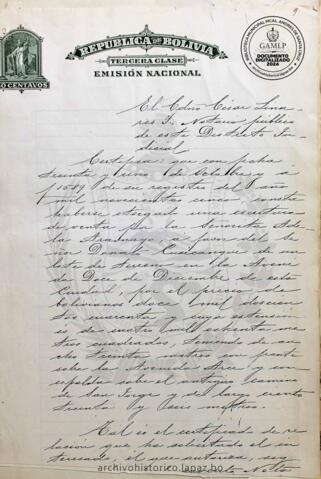 9
REPUBLICA DE BOLIVIA
TERCERA CLASE
EMISIÓN NACIONAL
CENTAVOS
BIBLIOTECA MUNICIPAL MCAL. ANDRÉS DE SANTA CRUZ
GAMLP
DOCUMENTO
DIGITALIZADO
2024
archivohistorico.lapaz.bo
El Cdno César Lina
res F. Notario público
de este Distrito Ju
dicial
Certifica: que con fecha
treinta y uno de Octubre y a
f/ de su registro del año
mil novecientos cinco consta
haberse otorgado una escritura
de venta por la Señorita Ade
la a favor del Se
ñor Donato de un
lote de terreno en la Aveni
da Diez de Diciembre de esta
Ciudad, por el precio de
bolivianos doce mil doscien
tos cuarenta y cuya extensión
es de cuatro mil ochenta me
tros cuadrados, teniendo de an
cho treinta metros con frente
sobre la Avenida Arce y con
espalda sobre el antiguo camino
de San Jorge y de largo ciento
treinta y seis metros.
Tal es el certificado de re
lación que ha solicitado el in
teresado, el que autoriza, sig
archivohistorico.lapaz.bo